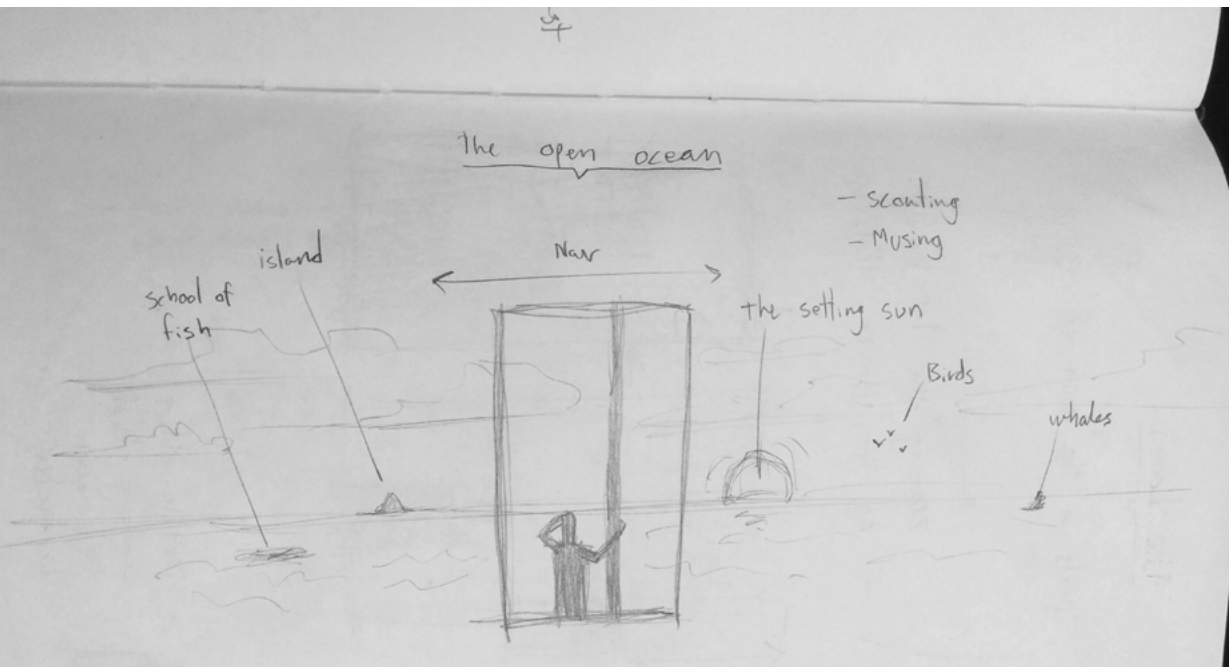 The open ocean
- Scouting
- Musing
Nav
island
school of
fish
the setting sun
Birds
whales